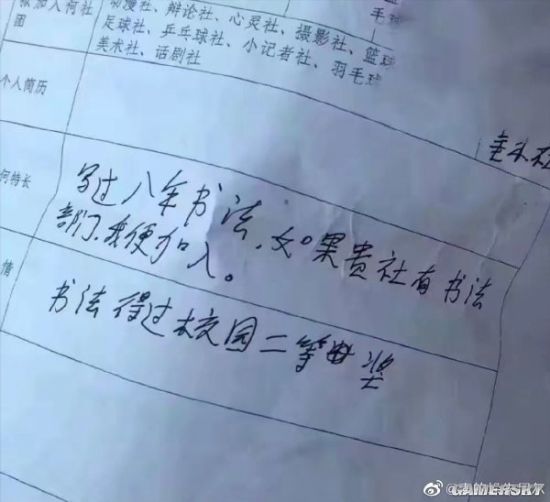 欲加入何社团
动漫社、辩论社、心灵社、摄影社、篮球
足球社、乒乓球社、小记者社、羽毛球
美术社、话剧社
毛球
个人简历
何特长
写过八年书法,如果贵社有书法
部门,我便加入。
情
书法得过校园二等奖
GAMERSKY